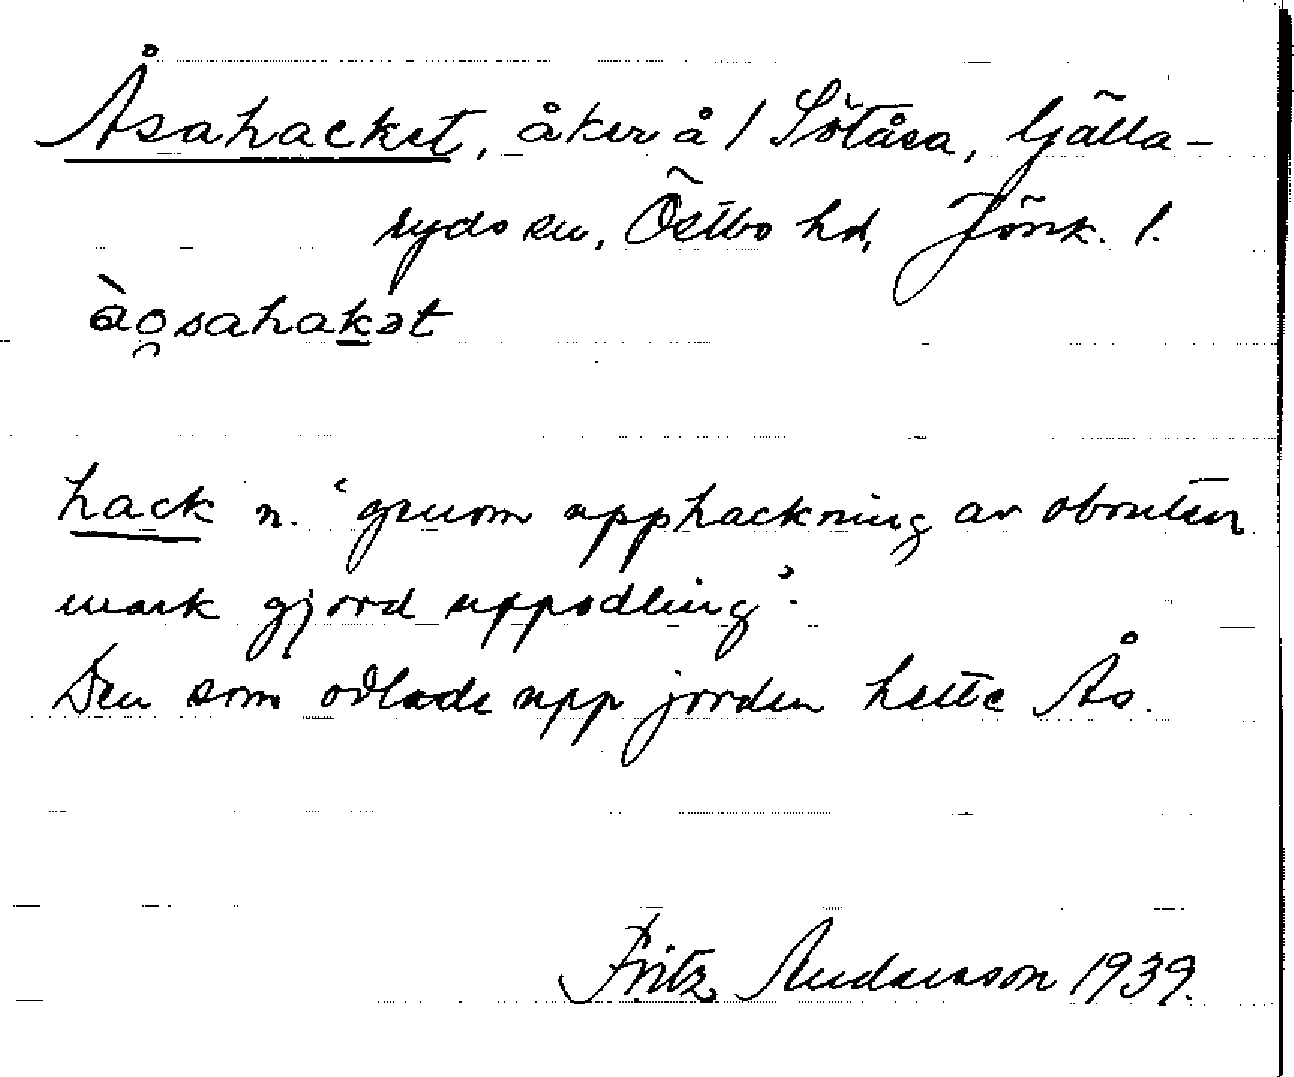 Åsahacket, åker å / Sötåsa, Gjälla-
ryds sn, Östbo hd, Jönk. l.
hack n. 'genom upphackning av obruten
mark gjord uppodling'.
Den som odlade upp jorden hette Ås.
Fritz Andersson 1939.